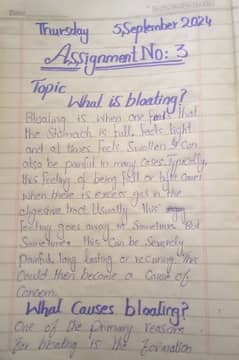 Thursday 5,September 2024
Assignment No: 3
Topic
What is bloating?
Bloating is when one feels that
the Stomach is full, feels tight
and at times feels Swollen & Can
also be painful in many cases. typically,
this feeling of being full or tight Occurs
when there is excess gas in the
digestive tract. Usually "this"
feeling goes away in Sometime. But
Sometimes this Can be Severely
Painful, long lasting or recurring. This
Could then become a Cause of
Concern.
What Causes bloating?
One of the primary reasons
for bloating is the formation